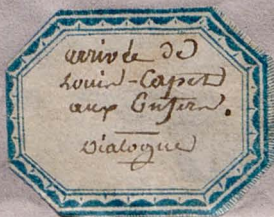 arrivée de
Louis-Capet
aux Enfers.
Dialogue